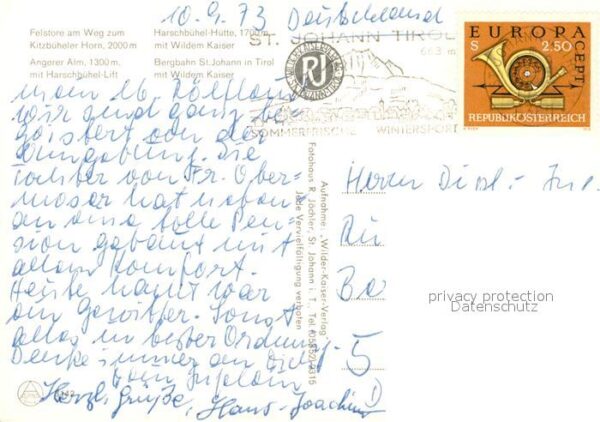 10.9.73 Deutschland
Felstore am Weg zum
Kitzbüheler Horn, 2000 m
Angerer Alm, 1300 m.
mit Harschbühel-Lift
Harschbühel-Hütte, 1700 m
mit Wildem Kaiser
Bergbahn St. Johann in Tirol
mit Wildem Kaiser
ST. JOHANN TIROL
663 m
SOMMERFRISCHE WINTERSPORT
EUROPA
CEPT
S 2.50
REPUBLIK ÖSTERREICH
wir sind ganz be-
geistert von der
Umgebung. Die
Tochter von Fr. Ober-
moser hat neben-
an eine tolle Pen-
sion gebaut mit
allem Komfort.
Heute Nacht war
ein Gewitter. Sonst
alles in bester Ordnung
Denke immer an Dich!
Herzl. Grüße, Hans-Joachim
Aufnahme: „Wilder-Kaiser-Verlag“
Fotohaus R. Jöchler, St. Johann i. T., Tel.
Jede Vervielfältigung verboten
Herrn Dipl.-Ing.
5
privacy protection
Datenschutz